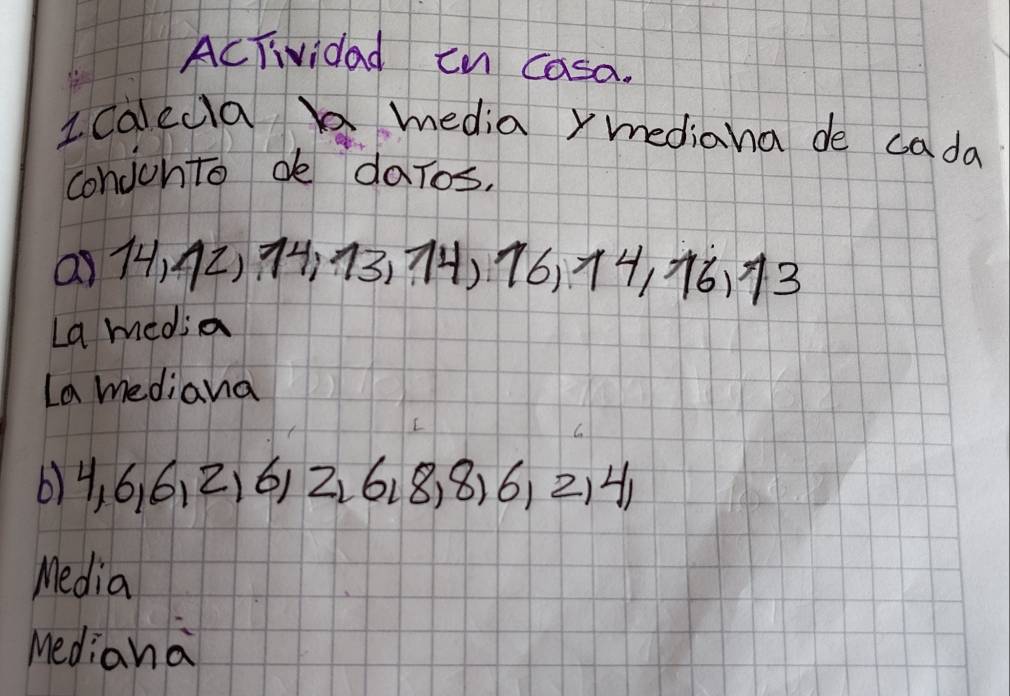 Actividad en casa.
1 calcula la media y mediana de cada
conjunto de datos.
a) 14, 12, 14, 13, 14, 16, 14, 16, 13
La media
La mediana
b) 4, 6, 6, 2, 6, 2, 6, 8, 8, 6, 2, 4,
Media
Mediana